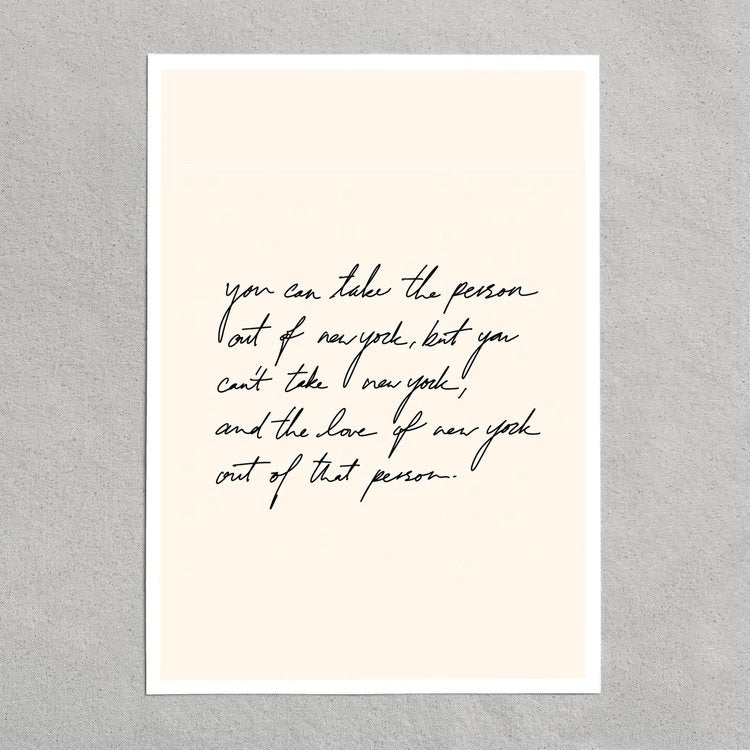 you can take the person
out of new york, but you
can't take new york,
and the love of new york
out of that person.